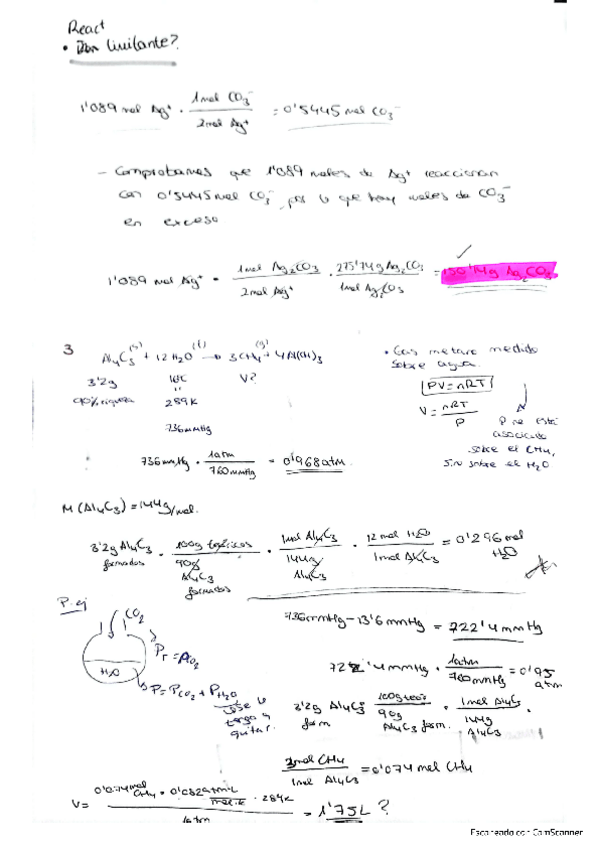 React
• Limitante?
1'089 mol Ag⁺ · 1mol CO₃⁻ / 2mol Ag⁺ = 0'5445 mol CO₃⁻
- Comprobamos que 1'089 moles de Ag⁺ reaccionan
con 0'5445 mol CO₃⁻, por lo que hay moles de CO₃⁻
en exceso
1'089 mol Ag⁺ · 1mol Ag₂CO₃ / 2mol Ag⁺ · 275'74g Ag₂CO₃ / 1mol Ag₂CO₃ = 150'14g Ag₂CO₃
3 Al₄C₃(s) + 12H₂O(l) → 3CH₄(g) + 4Al(OH)₃
3'2g 16ºC V?
90% riqueza 289K
736mmHg
• Gas metano medido
sobre agua.
PV=nRT
V = nRT / P
P no está
asociada
sobre el CH₄,
sin sobre el H₂O
736mmHg · 1atm / 760mmHg = 0'968atm
M(Al₄C₃)=144g/mol.
3'2g Al₄C₃ formados · 100g / 90g Al₄C₃ formados · 1mol Al₄C₃ / 144g Al₄C₃ · 12 mol H₂O / 1mol Al₄C₃ = 0'296 mol H₂O
P.ej
CO₂
H₂O
P = P_CO₂ + P_H₂O
tengo q
quitar.
736mmHg - 13'6mmHg = 722'4mmHg
722'4mmHg · 1atm / 760mmHg = 0'95 atm
3'2g Al₄C₃ form · 100g / 90g Al₄C₃ form. · 1mol Al₄C₃ / 144g Al₄C₃ ·
3mol CH₄ / 1mol Al₄C₃ = 0'074 mol CH₄
V = 0'074mol CH₄ · 0'082 atm·L / mol·K · 289K / 1atm = 1'75L ?
Escaneado con CamScanner